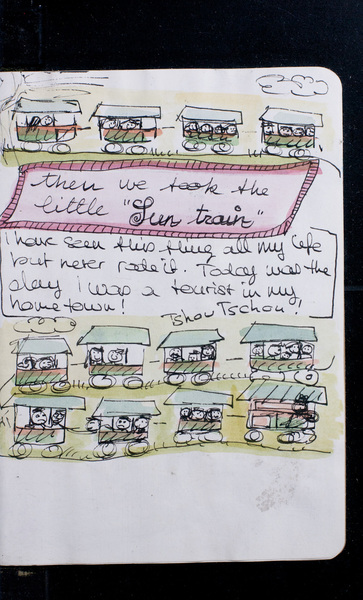 then we took the
little "Fun train"
I have seen this thing all my life
but never rode it. Today was the
day I was a tourist in my
home town!
Tshou Tschou!